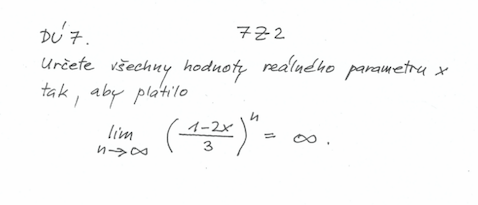 DÚ 7. 7Z2
Určete všechny hodnoty reálného parametru x
tak, aby platilo
lim n→∞ (1-2x/3)^n = ∞.